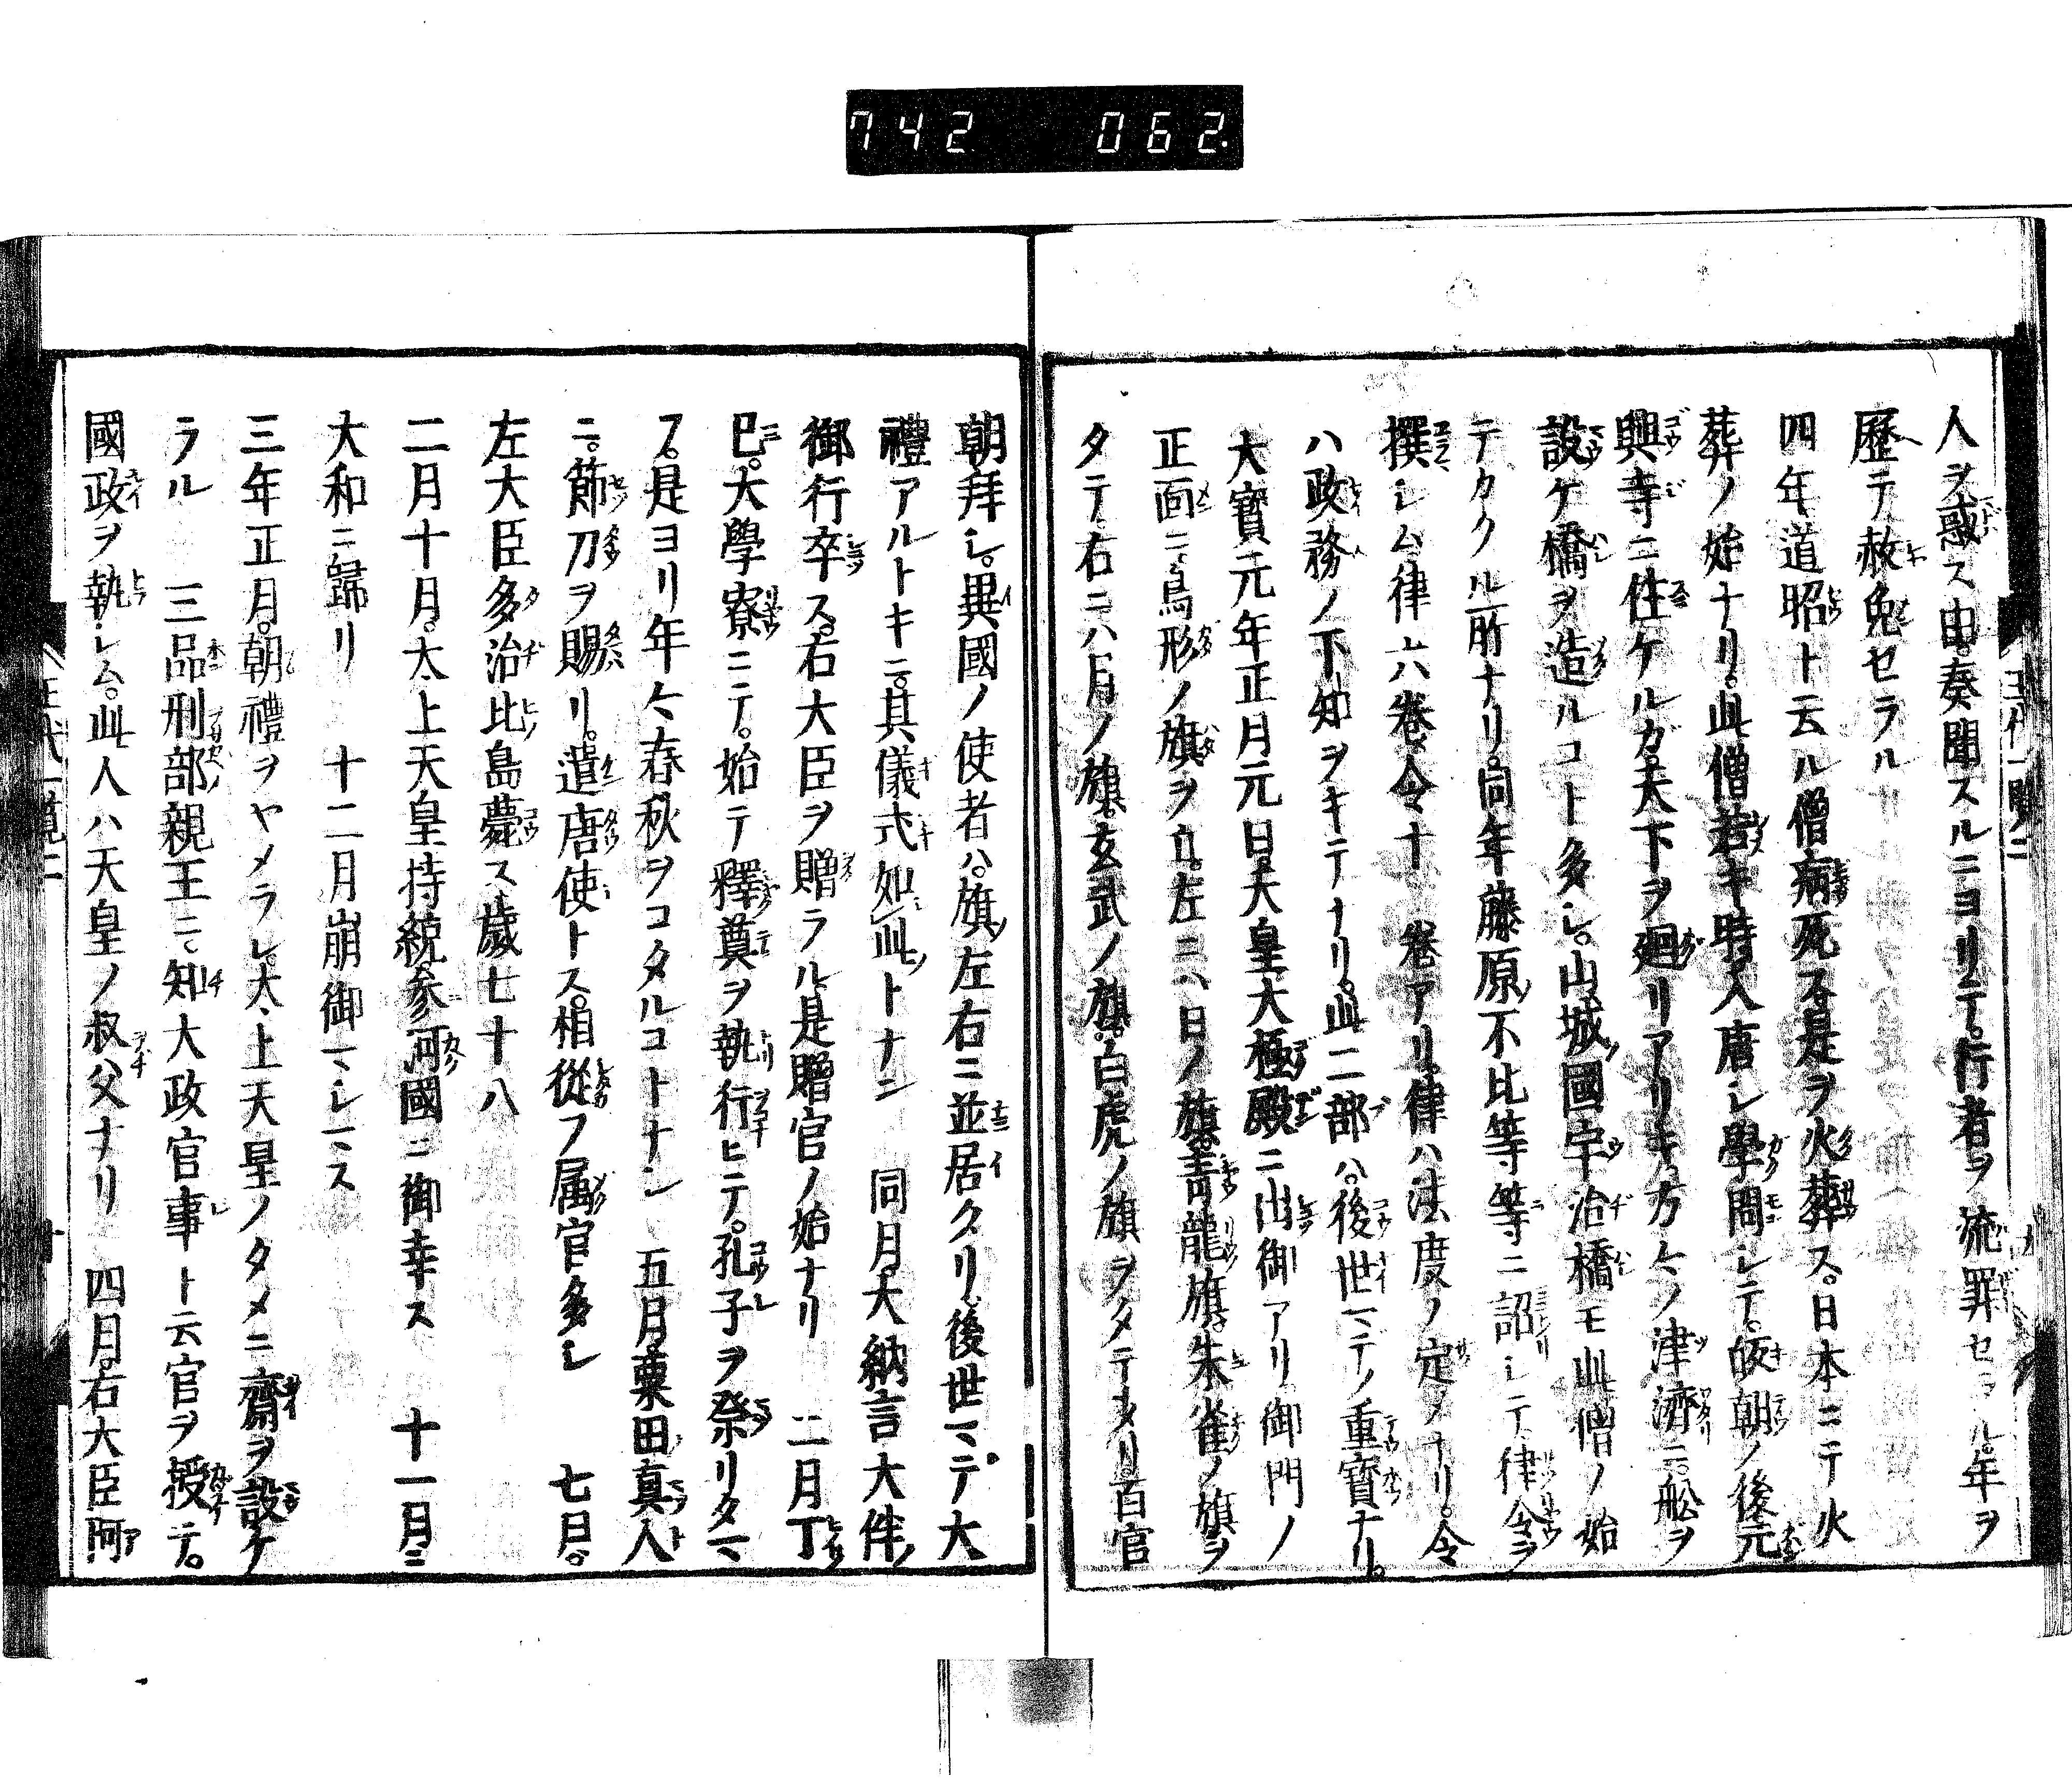 742 062.
人ヲ惑ス由。奏聞スルニヨリテ。行者ヲ流罪セラル。年ヲ
歴テ赦免セラル
四年道昭ト云ル僧病死ス。是ヲ火葬ス。日本ニテ火
葬ノ始ナリ。此僧若キ時入唐シ學問シテ。皈朝ノ後元
興寺ニ住ケルガ。天下ヲ廻リアリキ。方々ノ津濟ニ。舩ヲ
設ケ橋ヲ造ルコト多シ。山城國宇治橋モ此僧ノ始
テカクル所ナリ。同年藤原不比等等ニ詔シテ律令ヲ
撰シム。律六卷。令十一卷アリ。律ハ法度ノ定メナリ。令
ハ政務ノ下知ヲキテナリ。此二部ハ。後世マデノ重寶ナリ。
大寶元年正月元日。天皇大極殿ニ出御アリ御門ノ
正面ニ。鳥形ノ旗ヲ立。左ニハ日ノ旗。青龍旗。朱雀ノ旗ヲ
タテ。右ニハ月ノ旗。玄武ノ旗。白虎ノ旗ヲタテタリ。百官
朝拜シ。異國ノ使者ハ。旗ノ左右ニ並居タリ。後世マデ。大
禮アルトキニ。其儀式如此トナン 同月。大納言大伴
御行卒ス。右大臣ヲ贈ラル。是贈官ノ始ナリ 二月丁
巳。大學寮ニテ。始テ釋奠ヲ執行ヒテ。孔子ヲ祭リタマ
フ。是ヨリ年々春秋ヲコタルコトナシ 五月。粟田真人
ニ。節刀ヲ賜リ。遣唐使トス。相從フ属官多シ 七月。
左大臣多治比島薨ス歲七十八
二月十月。太上天皇持統。参河國ニ御幸ス 十一月ニ
大和ニ歸リ 十二月崩御マシマス
三年正月。朝禮ヲヤメラレ。太上天皇ノタメニ齋ヲ設ケ
ラル 三品刑部親王ニ。知大政官事ト云官ヲ授テ。
國政ヲ執シム。此人ハ天皇ノ叔父ナリ 四月。右大臣阿